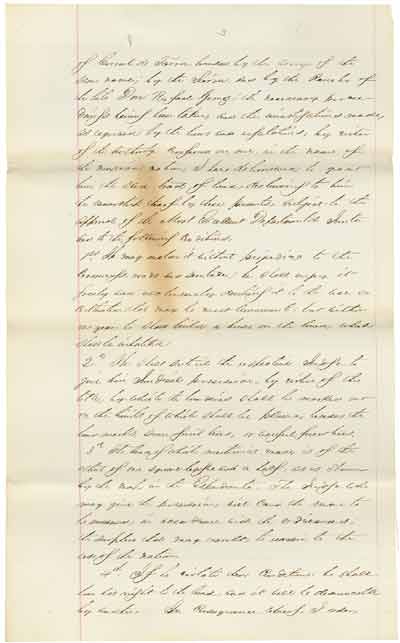 3
of
same name; by the Sierra and by the Rancho of
the late Don Rafael Gomez; the necessary procee-
dings having been taken, and the investigations made,
as required by the laws and regulations, by virtue
of the authority conferred on me, in the name of
the Mexican nation, I have determined to grant
him the said tract of land, declaring to him
the ownership thereof by these presents subject to the
approval of the Most Excellent Departmental Junta
and to the following conditions.
1st He may enclose it without prejudice to the
crossings roads and servitudes; he shall enjoy it
freely and exclusively destining it to the use or
cultivation that may be most convenient; but within
one year he shall build a house on the land, which
shall be inhabited.
2d He shall solicit the respective Judge to
give him juridical possession, by virtue of this
by which the boundaries shall be marked out
on the limits of which shall be placed besides the
land marks some fruit trees, or useful forest trees.
3d The land of which mention is made is of the
extent of one square league and a half, as is shown
by the map in the Expediente. The Judge who
may give the possession, will cause the same to
be measured in accordance with the ordinance,
the surplus that may result to remain to the
use of the nation
4th If he violate these conditions he shall
lose his right to the land and it will be denounceable
by another. In consequence thereof I order,